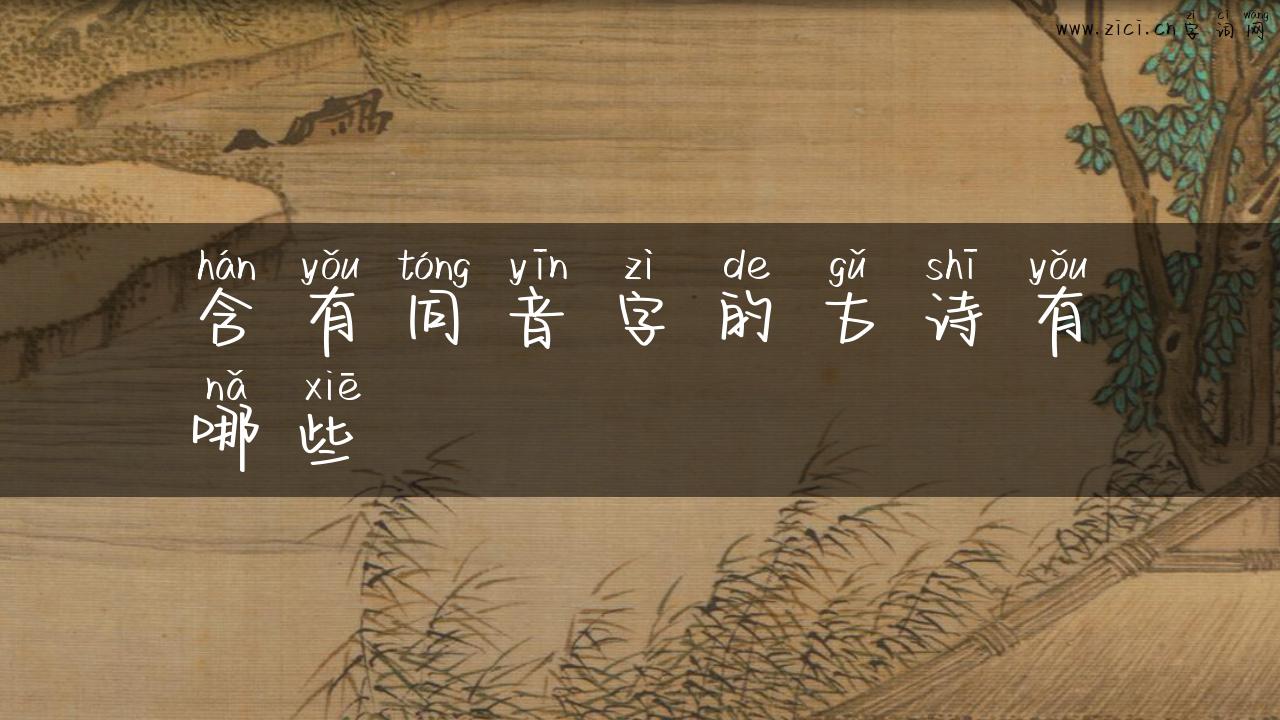 zì cí wǎng
www.zici.cn字词网
hán yǒu tóng yīn zì de gǔ shī yǒu
含有同音字的古诗有
nǎ xiē
哪些